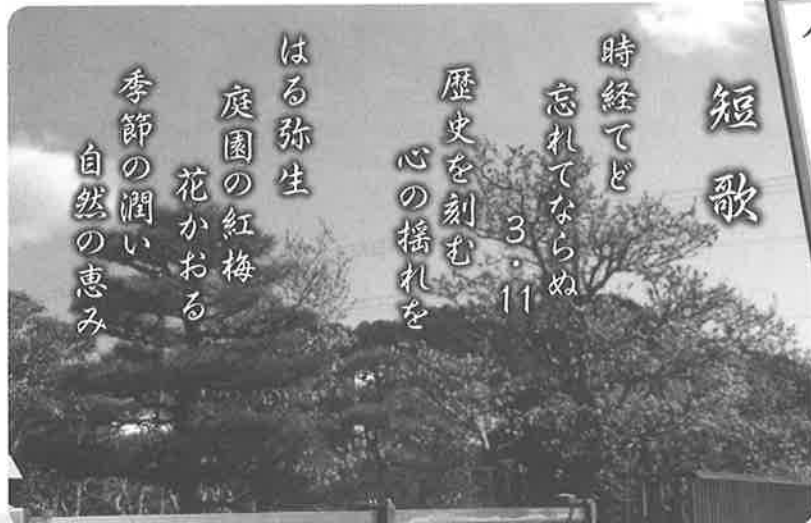 短歌
時経てど
忘れてならぬ
3・11
歴史を刻む
心の揺れを
はる弥生
庭園の紅梅
花かおる
季節の潤い
自然の恵み